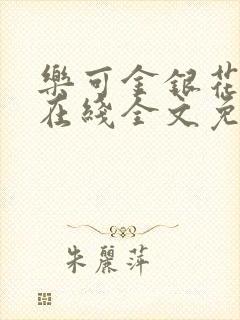 樂可金銀花
在綫全文免
朱麗萍